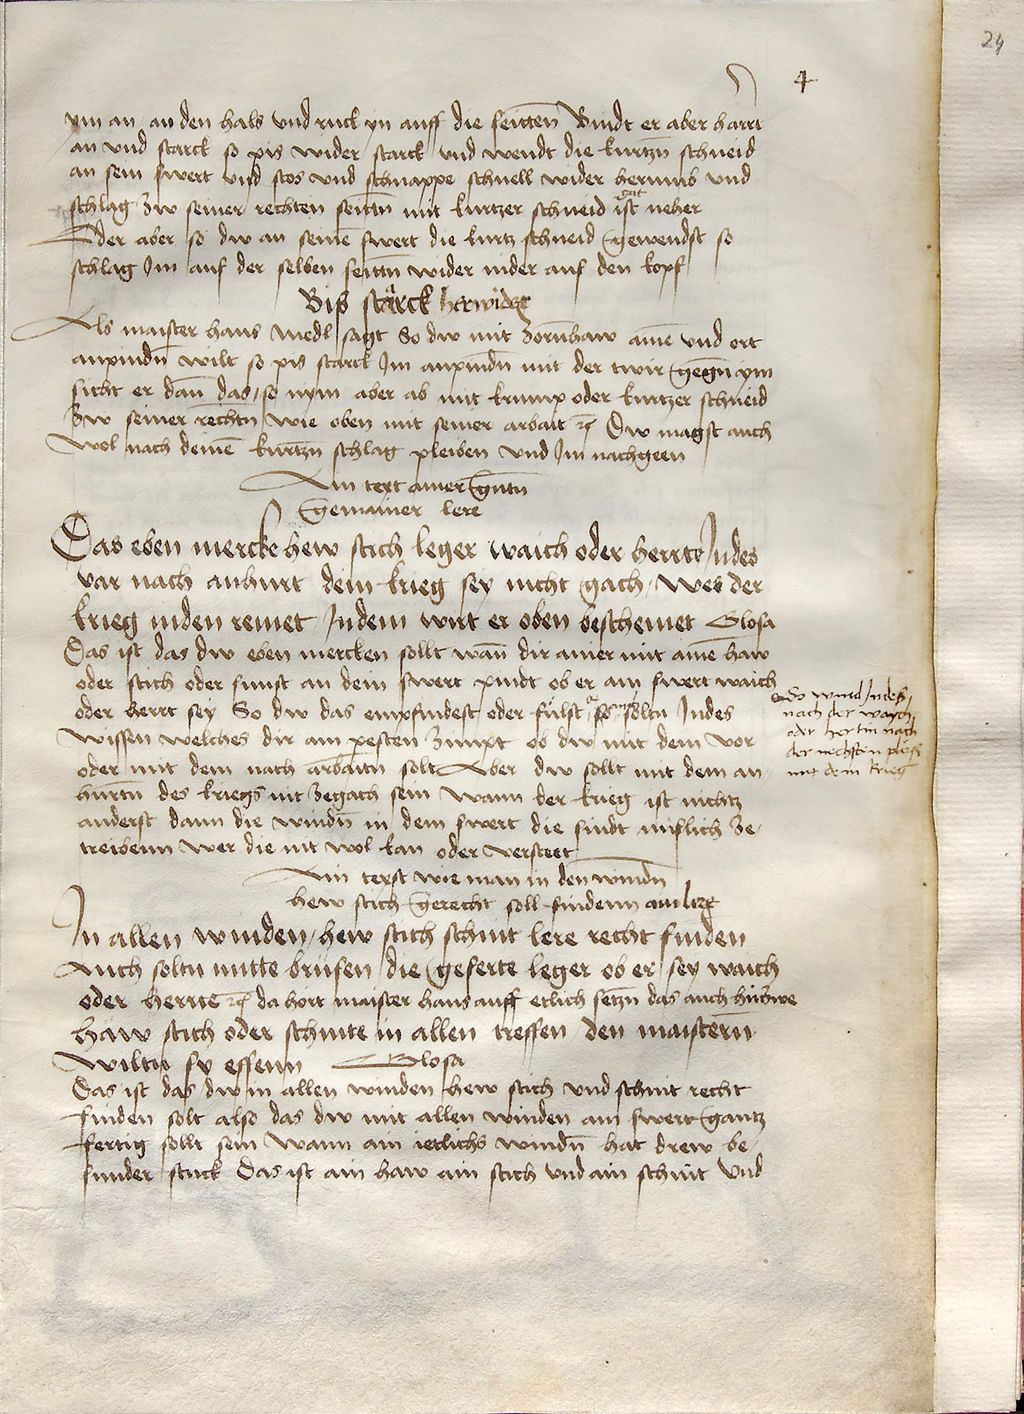 24
4
ym an an den hals vnd ruck yn auff die seitten̄ Bindt er aber hartt
an vnd starck so pis wider starck vnd wendt die kurtzn̄ schneid
an sein swert vnd stos vnd schnappe schnell wider herumb vnd
schlag Zw seiner rechten seittn̄ mit kurtzer schneid ist gut neher
Oder aber so dw an seinē swert die kurtz schneid gewendst so
schlag Im auf der selben seittn̄ wider nider auf den kopf
Bis starck herwider
Als maister hans medl sagt So dw mit Zorn̄haw ainē vnd ort
anpindn̄ wilt so pis starck Im anpindn̄ mit der twir gegn̄ ym
sicht er dan̄ das so nym aber ab mit krump oder kurtzer schneid
Zw seiner rechtn̄ wie oben mit seiner arbait ꝛc Dw magst auch
wol nach deinē kurtzn̄ schlag pleiben vnd Im nachgeen
Ain text ainer gutn̄
gemainer lere
Das eben mercke hew stich leger waich oder herrte Indes
var nach anhurt dein krieg sey nicht gach / Wes der
krieg niden remet / Indem wirt er oben beschemet Glosa
Das ist das dw eben mercken sollt wan̄ dir ainer mit ainē haw
oder stich oder sunst an dein swert pindt ob er am swert waich
oder herrt sey So dw das empfindest oder fülst so soltu Indes
wissen welches dir am pesten Zimpt ob dw mit dem vor
oder mit dem nach arbaitn̄ solt Aber dw sollt mit dem an
hurtn̄ des kriegs nit Zegach sein Wann der krieg ist nichtz
anderst dann die windn̄ in dem swert die sindt mislich Ze
treibenn wer die nit wol kan oder versteet
So wind Indes
nach der waych
oder hertin nach
der nechsten plös
mit dem krieg
Ain texst wie man in den windn̄
hew stich gerecht soll findenn ain lere
In allen winden / hew stich schnit lere recht finden
Auch soltu mitte brüfen die geferte leger ob er sey waich
oder herrte ꝛc da hort maister hans auff etlich setzn̄ das auch hinzwe
haw stich oder schnite in allen treffen den maistern̄
wiltu sy effenn Glosa
Das ist das dw in allen winden hew stich vnd schnit recht
finden solt also das dw mit allen winden am swert gantz
fertig sollt sein Wann ain ietlichs windn̄ hat drew be
sunder stuck Das ist ain haw ain stich vnd ain schnit Vnd